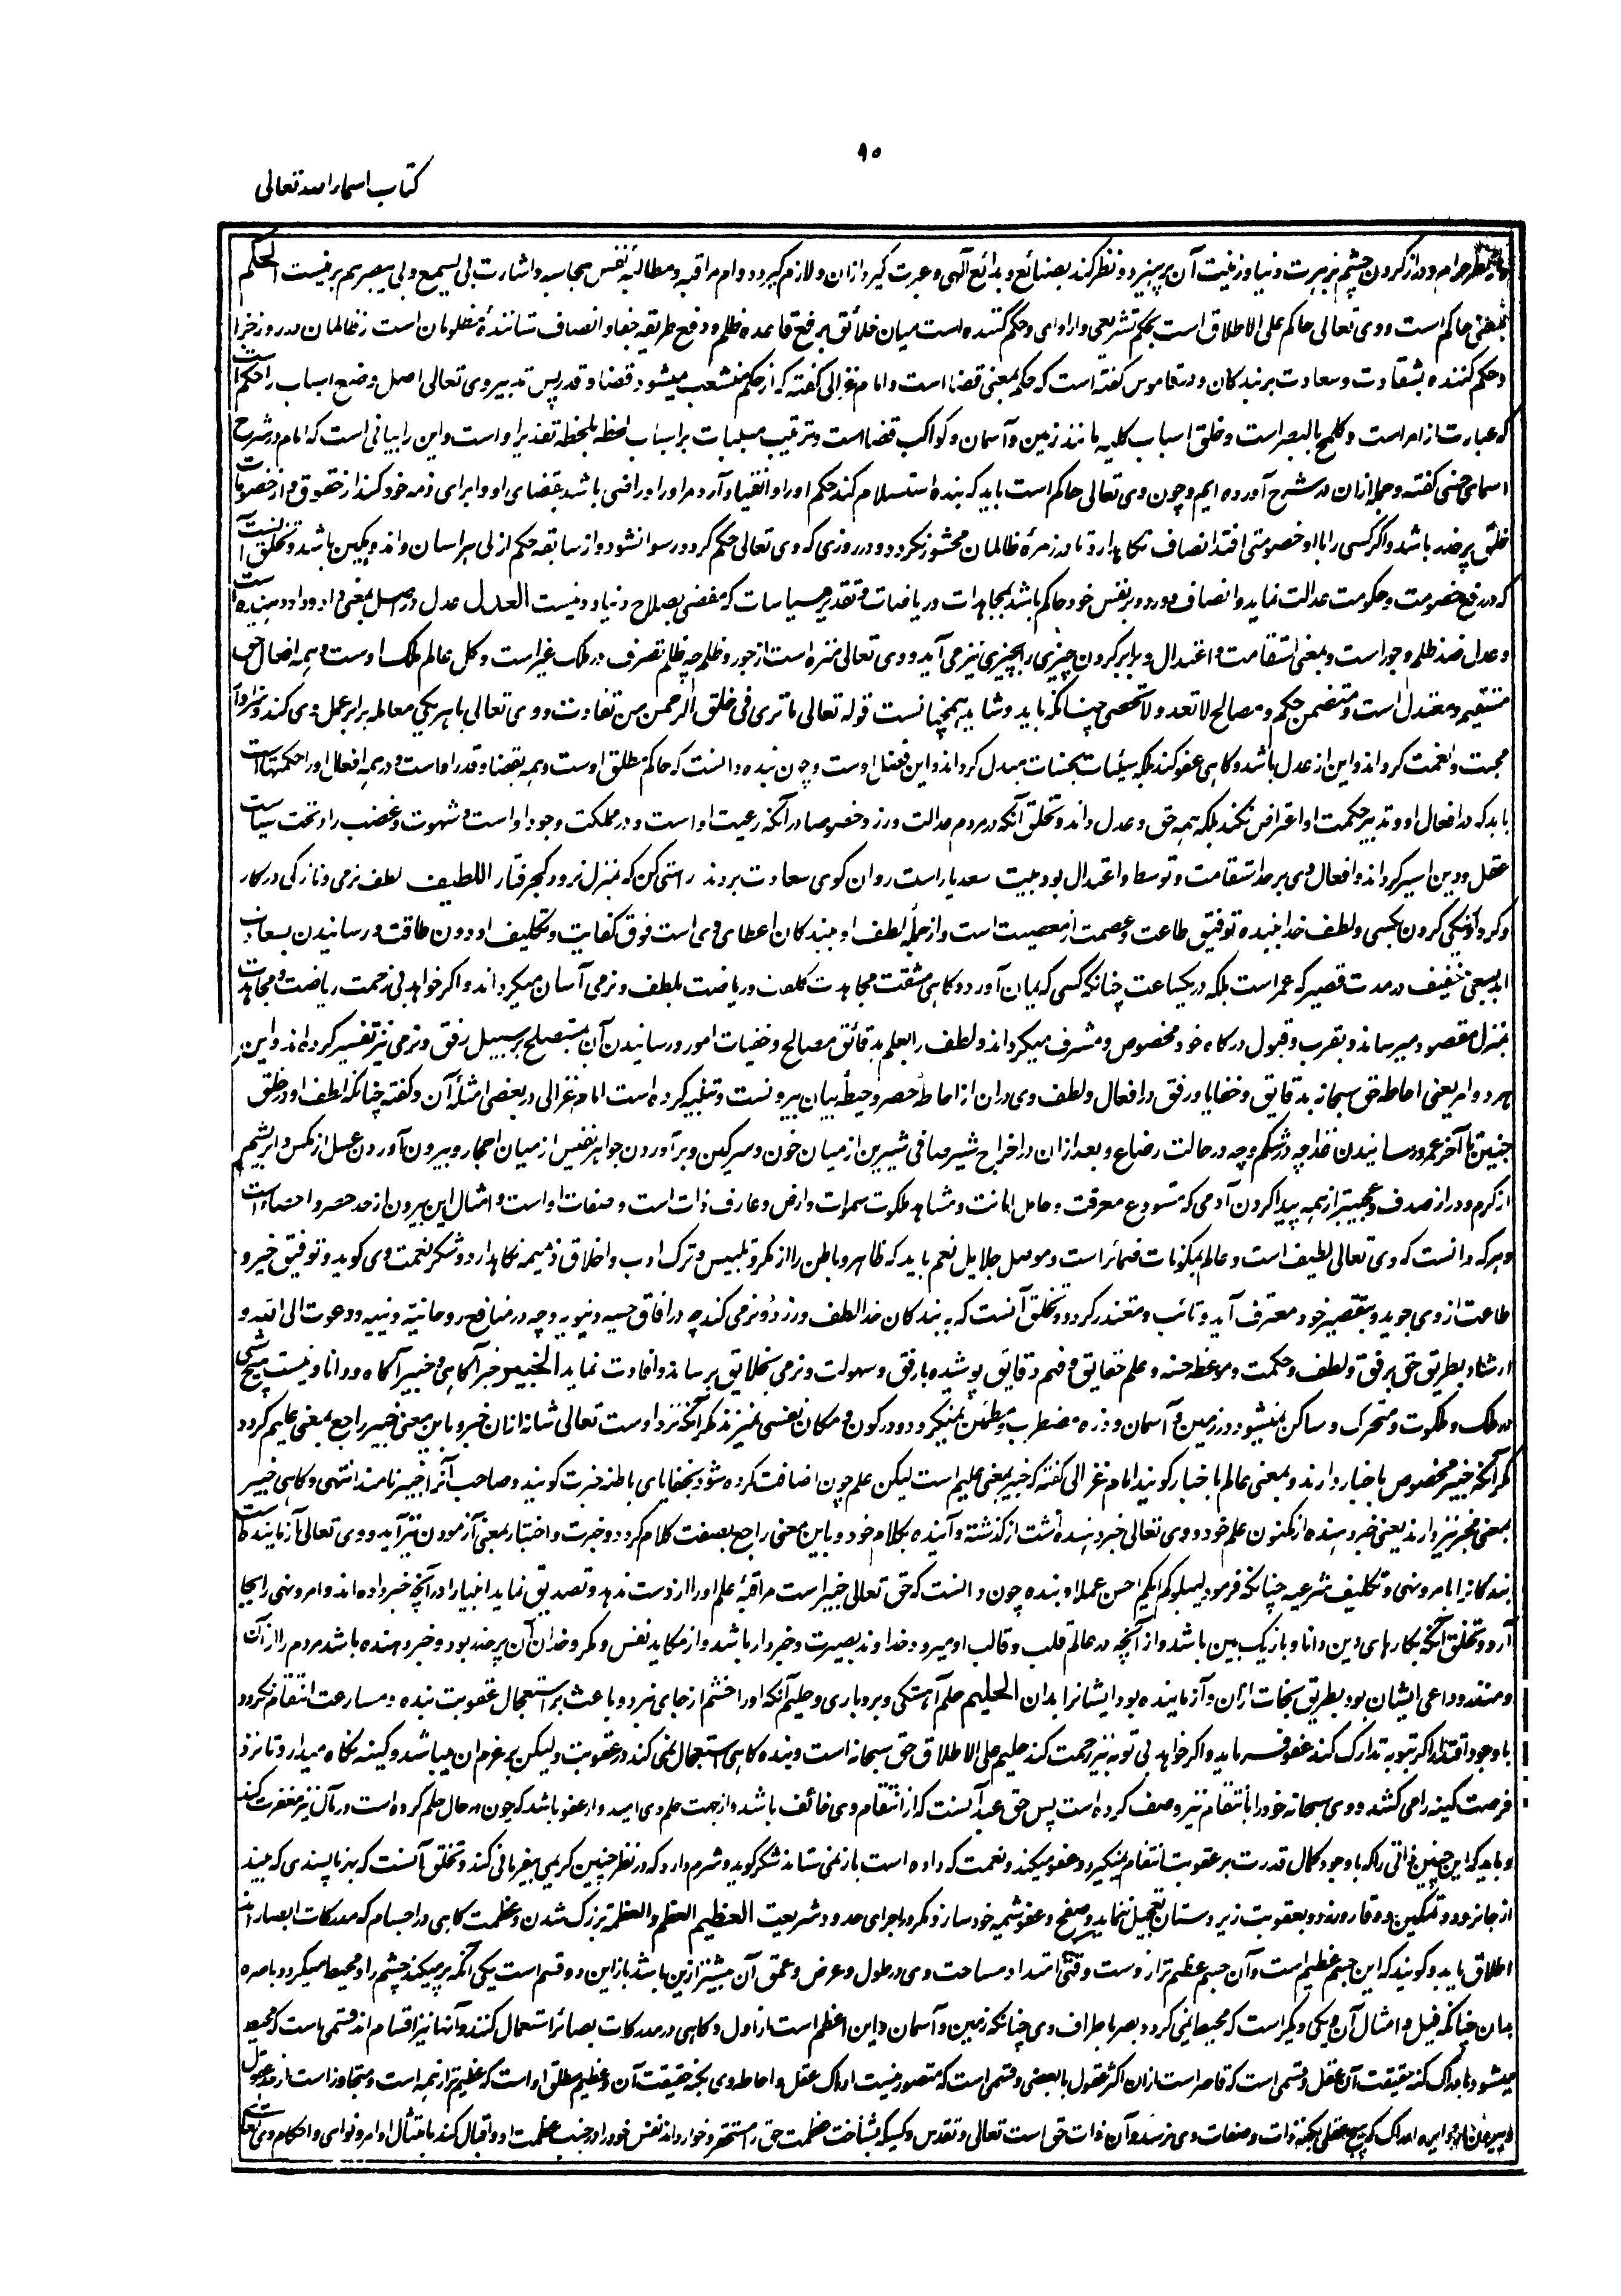 ۹۰
کتاب اسماء الله تعالی
نظر حرام و دراز کردن چشم بزهرت دنیا و زینت آن بپرهیزد و نظر کند بصنائع و بدائع آلهی و عبرت گیرد ازان و لازم گیرد دوام مراقبه و مطالبهٔ نفس بمحاسبه و اشارت بی یسمع و بی یبصر هم برینست الحکم
بمعنی حاکم است و وی تعالی حاکم علی الاطلاق است بحکم تشریعی و ارادی و حکم کننده است میان خلائق برفع قاعده ظلم و دفع طریقه جفا و انصاف ستانندهٔ مظلومان است ز ظالمان در روز جزا
و حکم کننده بشقاوت و سعادت بر بندگان و در قاموس گفته است که حکم بمعنی قضا است و امام غزالی گفته که از حکم منشعب میشود قضا و قدر پس تدبیر وی تعالی اصل وضع اسباب را حکم است
که عبارت از امر است و کلمح بالبصر است و خلق اسباب کلیه مانند زمین و آسمان و کواکب قضا است و ترتیب مسببات بر اسباب لحظه بلحظه تقدیر او است و این را بیانی است که امام در شرح
اسمای حسنی گفته و جمله ازان در شرح آورده ایم و چون وی تعالی حاکم است باید که بنده استسلام کند حکم او را و انقیاد آرد امر او را و راضی باشد بقضای او و ابرای ذمه خود کند از حقوق و از خصومات
خلق پر حذر باشد و اگر کسی را با او خصومتی افتد انصاف نگاهدارد تا در زمرهٔ ظالمان محشور نگردد و در روزی که وی تعالی حکم گردد رسوا نشود و از سابقه حکم ازلی هراسان و اندوهگین باشد و تخلق آنست
که در رفع خصومت و حکومت عدالت نماید و انصاف دورد و بر نفس خود حاکم باشد بمجاهدات و ریاضات و تقدیر سیاسات که مفضی بصلاح دنیا و دینست العدل عدل در اصل بمعنی داد و داد دهنده است
و عدل ضد ظلم و جور است و بمعنی استقامت و اعتدال و برابر کردن چیزی را بچیزی نیز می آید و وی تعالی منزه است از جور و ظلم چه ظلم تصرف در ملک غیر است و کل عالم ملک اوست و همه افعال حق
مستقیم و معتدل است و متضمن حکم و مصالح لا تعد و لا تحصی چنانکه باید و شاید همچنانست قوله تعالی ما تری فی خلق الرحمن من تفاوت و وی تعالی با هر یکی معامله برابر عمل وی کند
محبت و نعمت گرداند و این از عدل باشد و گاهی عفو کند بلکه سیّئات بحسنات مبدل گرداند و این فضل اوست و چون بنده دانست که حاکم مطلق اوست و همه بقضا و قدر اوست و در همه افعال او را حکمتهاست
باید که در افعال او و تدبیر حکمت او اعتراض نکند بلکه همه حق و عدل داند و تخلق آنکه در مردم عدالت ورزد خصوصا در آنکه رعیت او است و در مملکت وجود او است و شهوت و غضب را در تحت سیاست
عقل و دین اسیر گرداند و افعال وی بر حد استقامت و توسط و اعتدال بود بیت سعدیا راست روان گوی سعادت بردند راستی کن که بمنزل نرود کجرفتار اللطیف لطف نرمی و نازکی در کار
و کردار و نیکی کردن بکسی و لطف خدا ببنده توفیق طاعت و عصمت از معصیت است و از جملهٔ لطف او ببندگان اعطای وی است فوق کفایت و تکلیف او دون طاقت و رسانیدن بسعادت
ابد بسعی خفیف در مدت قصیر که عمر است بلکه در یکساعت چنانکه کسی که ایمان آورد و گاهی مشقت مجاهدت و کلفت ریاضت بلطف و نرمی آسان میگرداند و اگر خواهد بی زحمت ریاضت و مجاهدت
بمنزل مقصود میرساند و بقرب و قبول درگاه خود مخصوص و مشرف میگرداند و لطف را بعلم بدقائق مصالح و خفیات امور و رسانیدن آن بمستصلح بر سبیل رفق و نرمی نیز تفسیر کرده اند و این
هر دو امر یعنی احاطه حق سبحانه بدقایق و خفایا و رفق در افعال و لطف وی دران از احاطه حصر و حیطهٔ بیان بیرونست و تنبیه کرده است امام غزالی در بعضی امثلهٔ آن و گفته چنانکه لطف او در خلق
جنین تا آخر عمر و رسانیدن غذا چه در شکم و چه در حالت رضاع و بعد ازان در اخراج شیر صافی شیرین از میان خون و سرگین و بر آوردن جواهر نفیس از میان احجار و بیرون آوردن عسل از مگس و ابریشم
از کرم و در از صدف و عجیبتر از همه پیدا کردن آدمی که مستودع معرفت و حامل امانت و مشاهد ملکوت سموات و ارض و عارف ذات است و صفات او است و امثال این بیرون از حد حصر و احصاست
و هر که دانست که وی تعالی لطیف است و عالم بمکنونات ضمائر است و موصل جلایل نعم باید که ظاهر و باطن را از مکر و تلبیس و ترک ادب و اخلاق ذمیمه نگاهدارد و شکر نعمت وی گوید و توفیق خیر و
طاعت از وی جوید و بتقصیر خود معترف آید و تائب و معتذر گردد و تخلق آنست که به بندگان خدا لطف ورزد و نرمی کند چه در آفاق حسیه دنیویه و چه در منافع روحانیة دینیه و دعوت الی الله و
ارشاد بطریق حق برفق و لطف و حکمت و موعظه حسنه و علم حقایق و فهم دقایق پوشیده با رفق و سهولت و نرمی بخلایق برساند و افادت نماید الخبیر خبر آگاهی و خبیر آگاه و دانا و نیست هیچ شی
در ملک و ملکوت و متحرک و ساکن نمیشود در زمین و آسمان و ذره مضطرب و مطمئن نمیگردد و در کون و مکان نفسی نمیزند مگر آنکه نزد اوست تعالی شانه ازان خبر و باین معنی خبیر راجع بمعنی علیم گردد
مگر آنکه خبیر مخصوص باخبار دارند و بمعنی عالم باخبار گویند امام غزالی گفته که خبیر بمعنی علیم است لیکن علم چون اضافت کرده شود بخفایای باطنه خبرت گویند و صاحب آنرا خبیر نامند انتهی و گاهی خبیر
بمعنی مخبر نیز دارند یعنی خبر دهنده از مکنون علم خود و وی تعالی خبر دهنده است از گذشته و آینده بکلام خود و باین معنی راجع بصفت کلام گردد و خبرت و اختبار بمعنی آزمودن نیز آید و وی تعالی آزماینده است
بندگانرا بامر و نهی و تکلیف شرعیه چنانکه فرمود لیبلوکم ایکم احسن عملا و بنده چون دانست که حق تعالی خبیر است مراقبهٔ علم او را از دست ندهد و تصدیق نماید انبیا را در آنچه خبر داده اند و امر و نهی را بجا
آرد و تخلق آنکه بکارهای دین دانا و باریک بین باشد و از آنچه در عالم قلب و قالب او میرود خداوند بصیرت و خبردار باشد و از مکاید نفس و مکر و خداع آن پر حذر بود و خبر دهنده باشد مردم را از آن
و منقذ و داعی ایشان بود بطریق نجات ازان و آزماینده بود ایشانرا بدان الحلیم حلم آهستگی و بردباری و حلیم آنکه او را خشم از جای نبرد و باعث بر استعجال عقوبت نبده و مسارعت انتقام نگردد
با وجود اقتدار و اگر بتوبه تدارک کنند عفو فرماید و اگر خواهد بی توبه نیز رحمت کند حلیم علی الاطلاق حق سبحانه است و بنده گاهی استعجال نمی کند در عقوبت و لیکن بر عزم آن میباشد و کینه نگاه میدارد تا نزد
فرصت کینه را می کشد و وی سبحانه خود را بانتقام نیز وصف کرده است پس حق عبد آنست که از انتقام وی خائف باشد و از جهت حلم وی امیدوار عفو باشد که چون در حال حلم کرده است در مآل نیز مغفرت کند
و باید که این چنین ذاتی را که با وجود کمال قدرت بر عقوبت انتقام نمیگیرد و عفو میکند و نعمت که داده است باز نمی ستاند شکر گوید و شرم دارد که در نظر چنین کریمی بیفرمانی کند و تخلق آنست که بهر ناپسندی که بیند
از جا نرود و تمکین و وقار ورزد و بعقوبت زیردستان تعجیل ننماید و صفح و عفو شیمه خود سازد مگر در اجرای حدود شریعت العظیم العظم و العظمة بزرگ شدن و عظمت گاهی در اجسام که مدرکات ابصار اند
اطلاق یابد و گویند که این جسم عظیم است و آن جسم عظیم تر ازوست وقتی امتداد مساحت وی در طول و عرض و عمق آن بیشتر ازین باشد باز این دو قسم است یکی آنکه پر میکند چشم را و محیط میگردد باصره
بدان چنانکه فیل و امثال آن و یکی دیگر است که محیط نمی گردد بصر باطراف وی چنانکه زمین و آسمان و این اعظم است از اول و گاهی در مدرکات بصائر استعمال کنند و آنها نیز اقسام اند قسمی است که محیط
میشود بادراک کنه حقیقت آن عقل و قسمی است که قاصر است ازان اکثر عقول یا بعضی و قسمی است که متصور نیست ادراک عقل و احاطه وی بکنه حقیقت آن و عظیم مطلق او است که عظیم تر از همه است و متجاوز است از حد عقول
ادراک که هیچ عقل بکنه ذات و صفات وی نرسد و آن ذات حق است تعالی و تقدس و کسیکه بشناخت عظمت حق را مستحقر و خوار داند نفس خود را در جنب عظمت او و اقبال کند بامتثال اوامر و نواهی و احکام وی